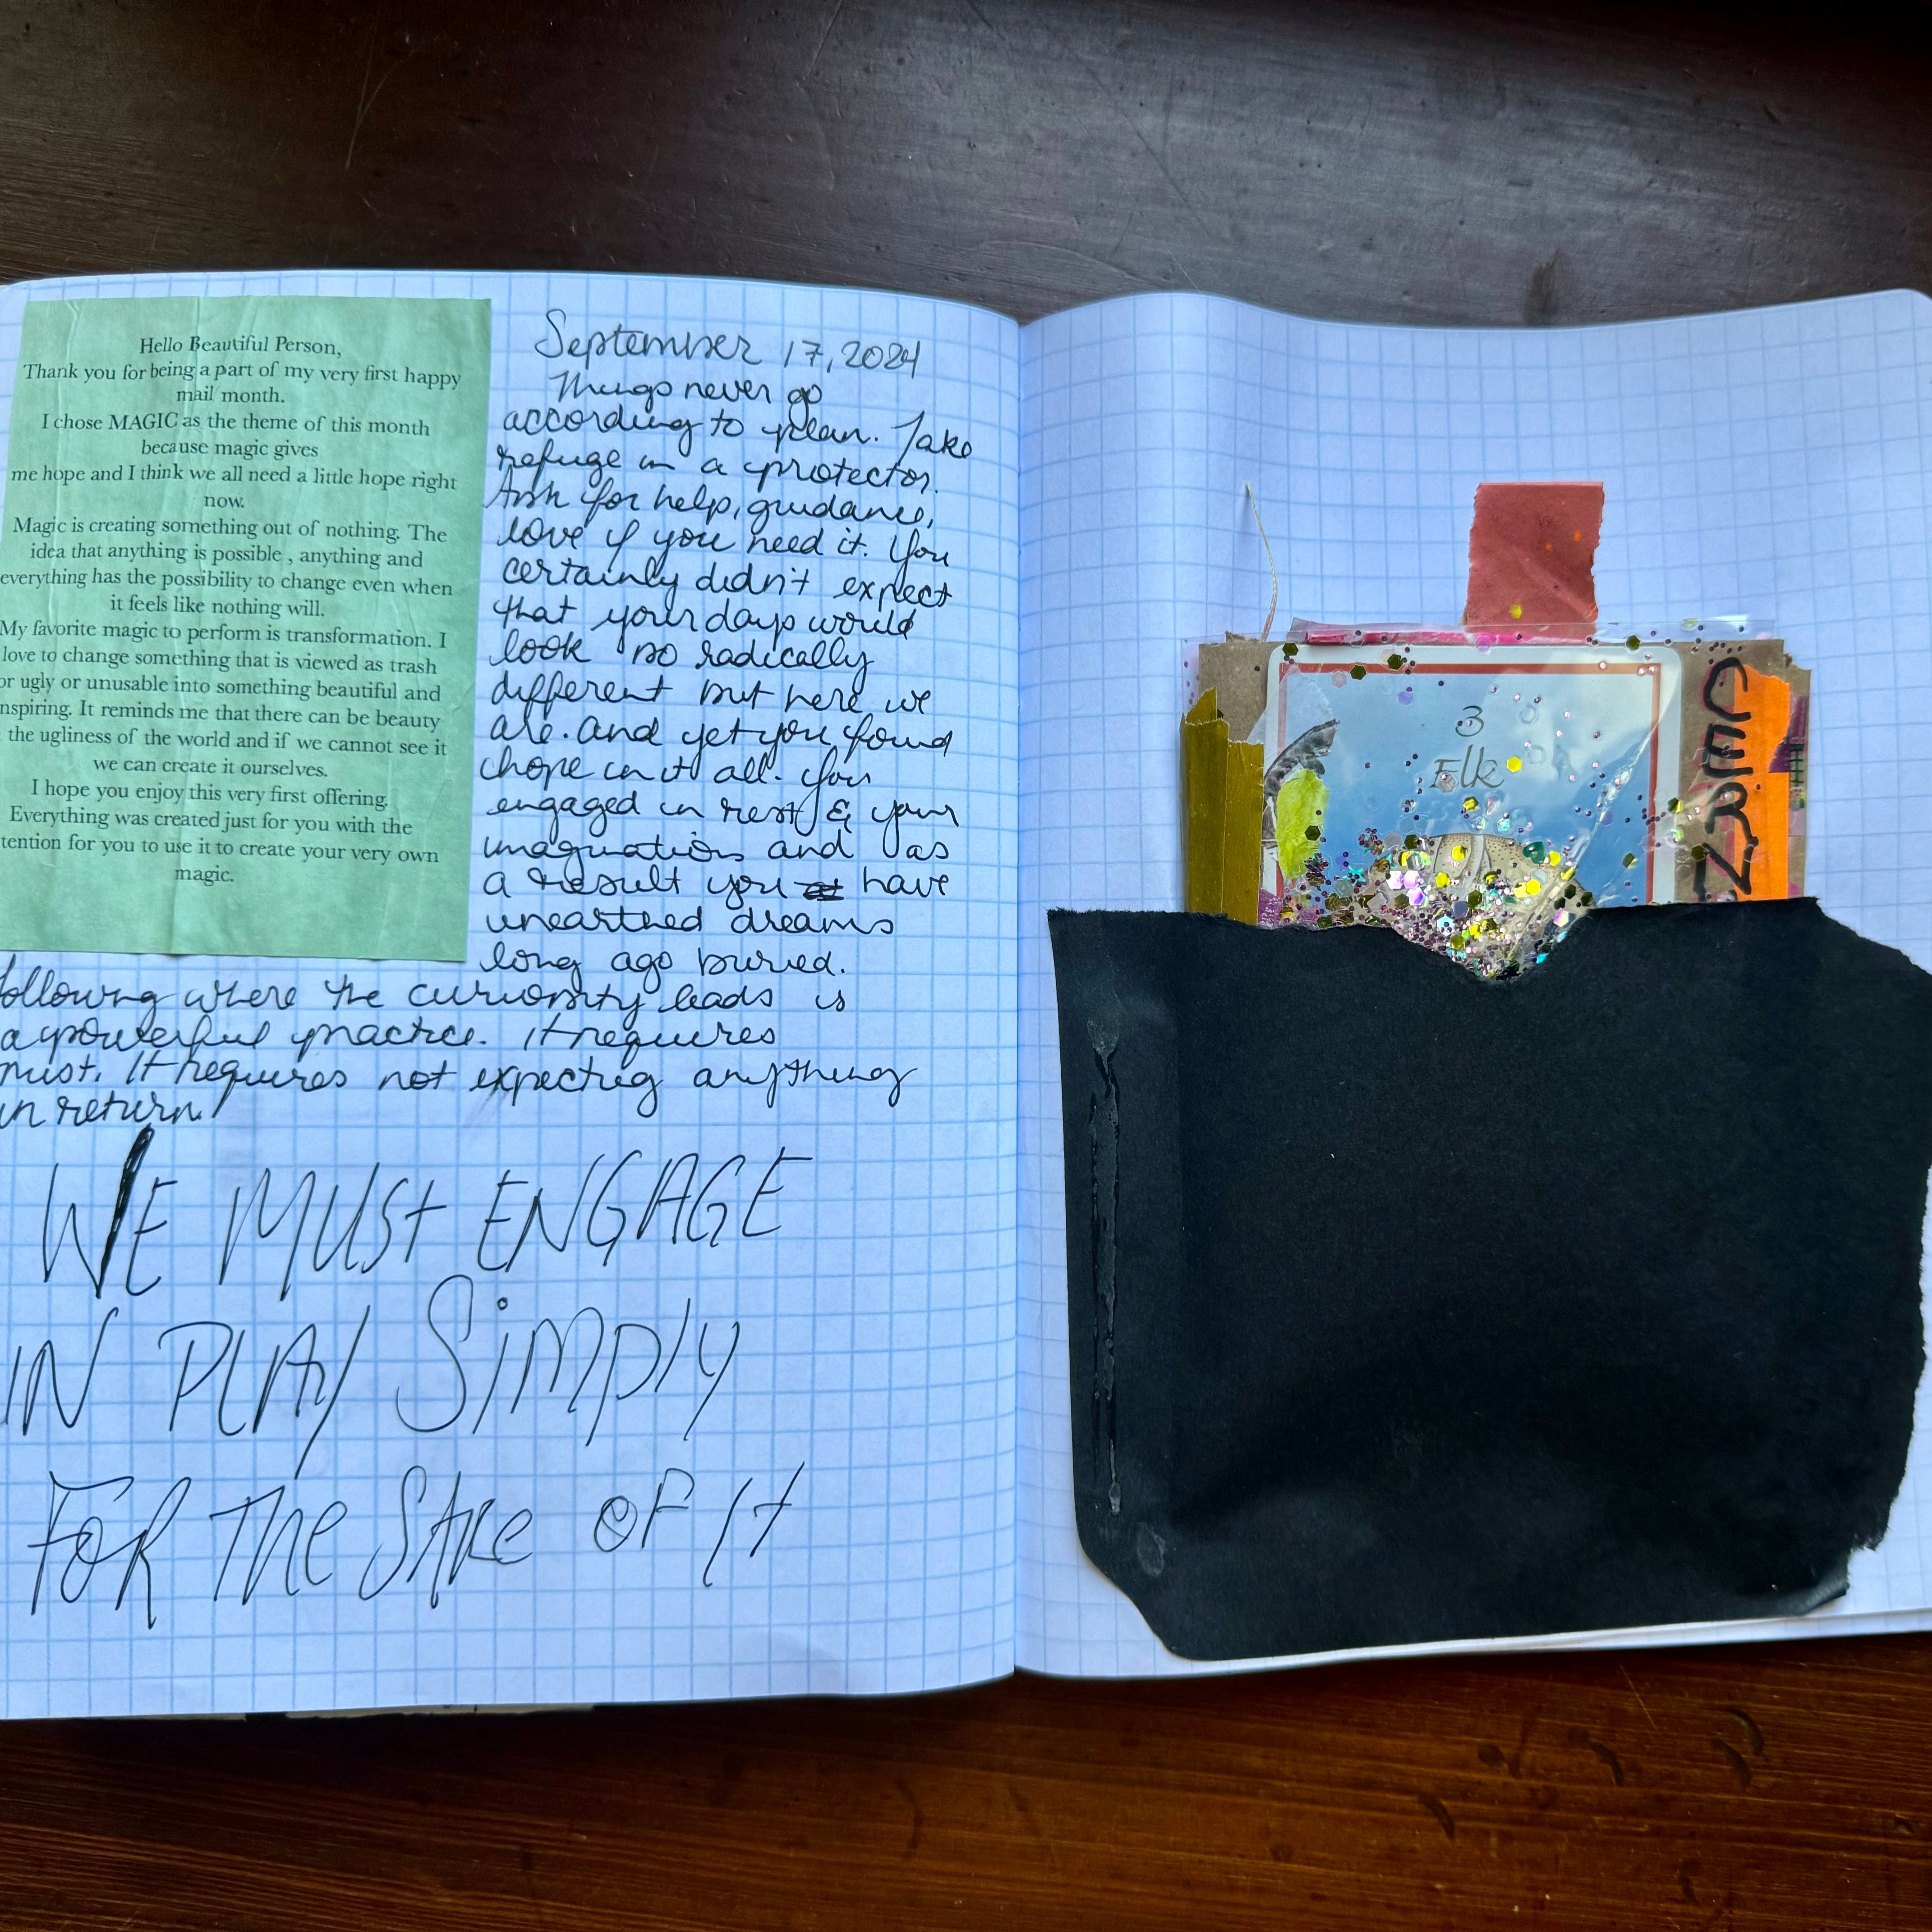 Hello Beautiful Person,
Thank you for being a part of my very first happy
mail month.
I chose MAGIC as the theme of this month
because magic gives
me hope and I think we all need a little hope right
now.
Magic is creating something out of nothing. The
idea that anything is possible , anything and
everything has the possibility to change even when
it feels like nothing will.
My favorite magic to perform is transformation. I
love to change something that is viewed as trash
or ugly or unusable into something beautiful and
nspiring. It reminds me that there can be beauty
the ugliness of the world and if we cannot see it
we can create it ourselves.
I hope you enjoy this very first offering.
Everything was created just for you with the
tention for you to use it to create your very own
magic.
September 17, 2024
Things never go
according to plan. Take
refuge in a protector.
Ask for help, guidance,
love if you need it. You
certainly didn't expect
that your days would
look so radically
different but here we
are. And yet you found
hope in it all. You
engaged in rest & your
imagination and as
a result you have
unearthed dreams
long ago buried.
following where the curiosity leads is
a powerful practice. It requires
trust. It requires not expecting anything
in return.
WE MUSt ENGAGE
IN PLAY SiMPlY
FOR THe SAKe OF It
3
Elk